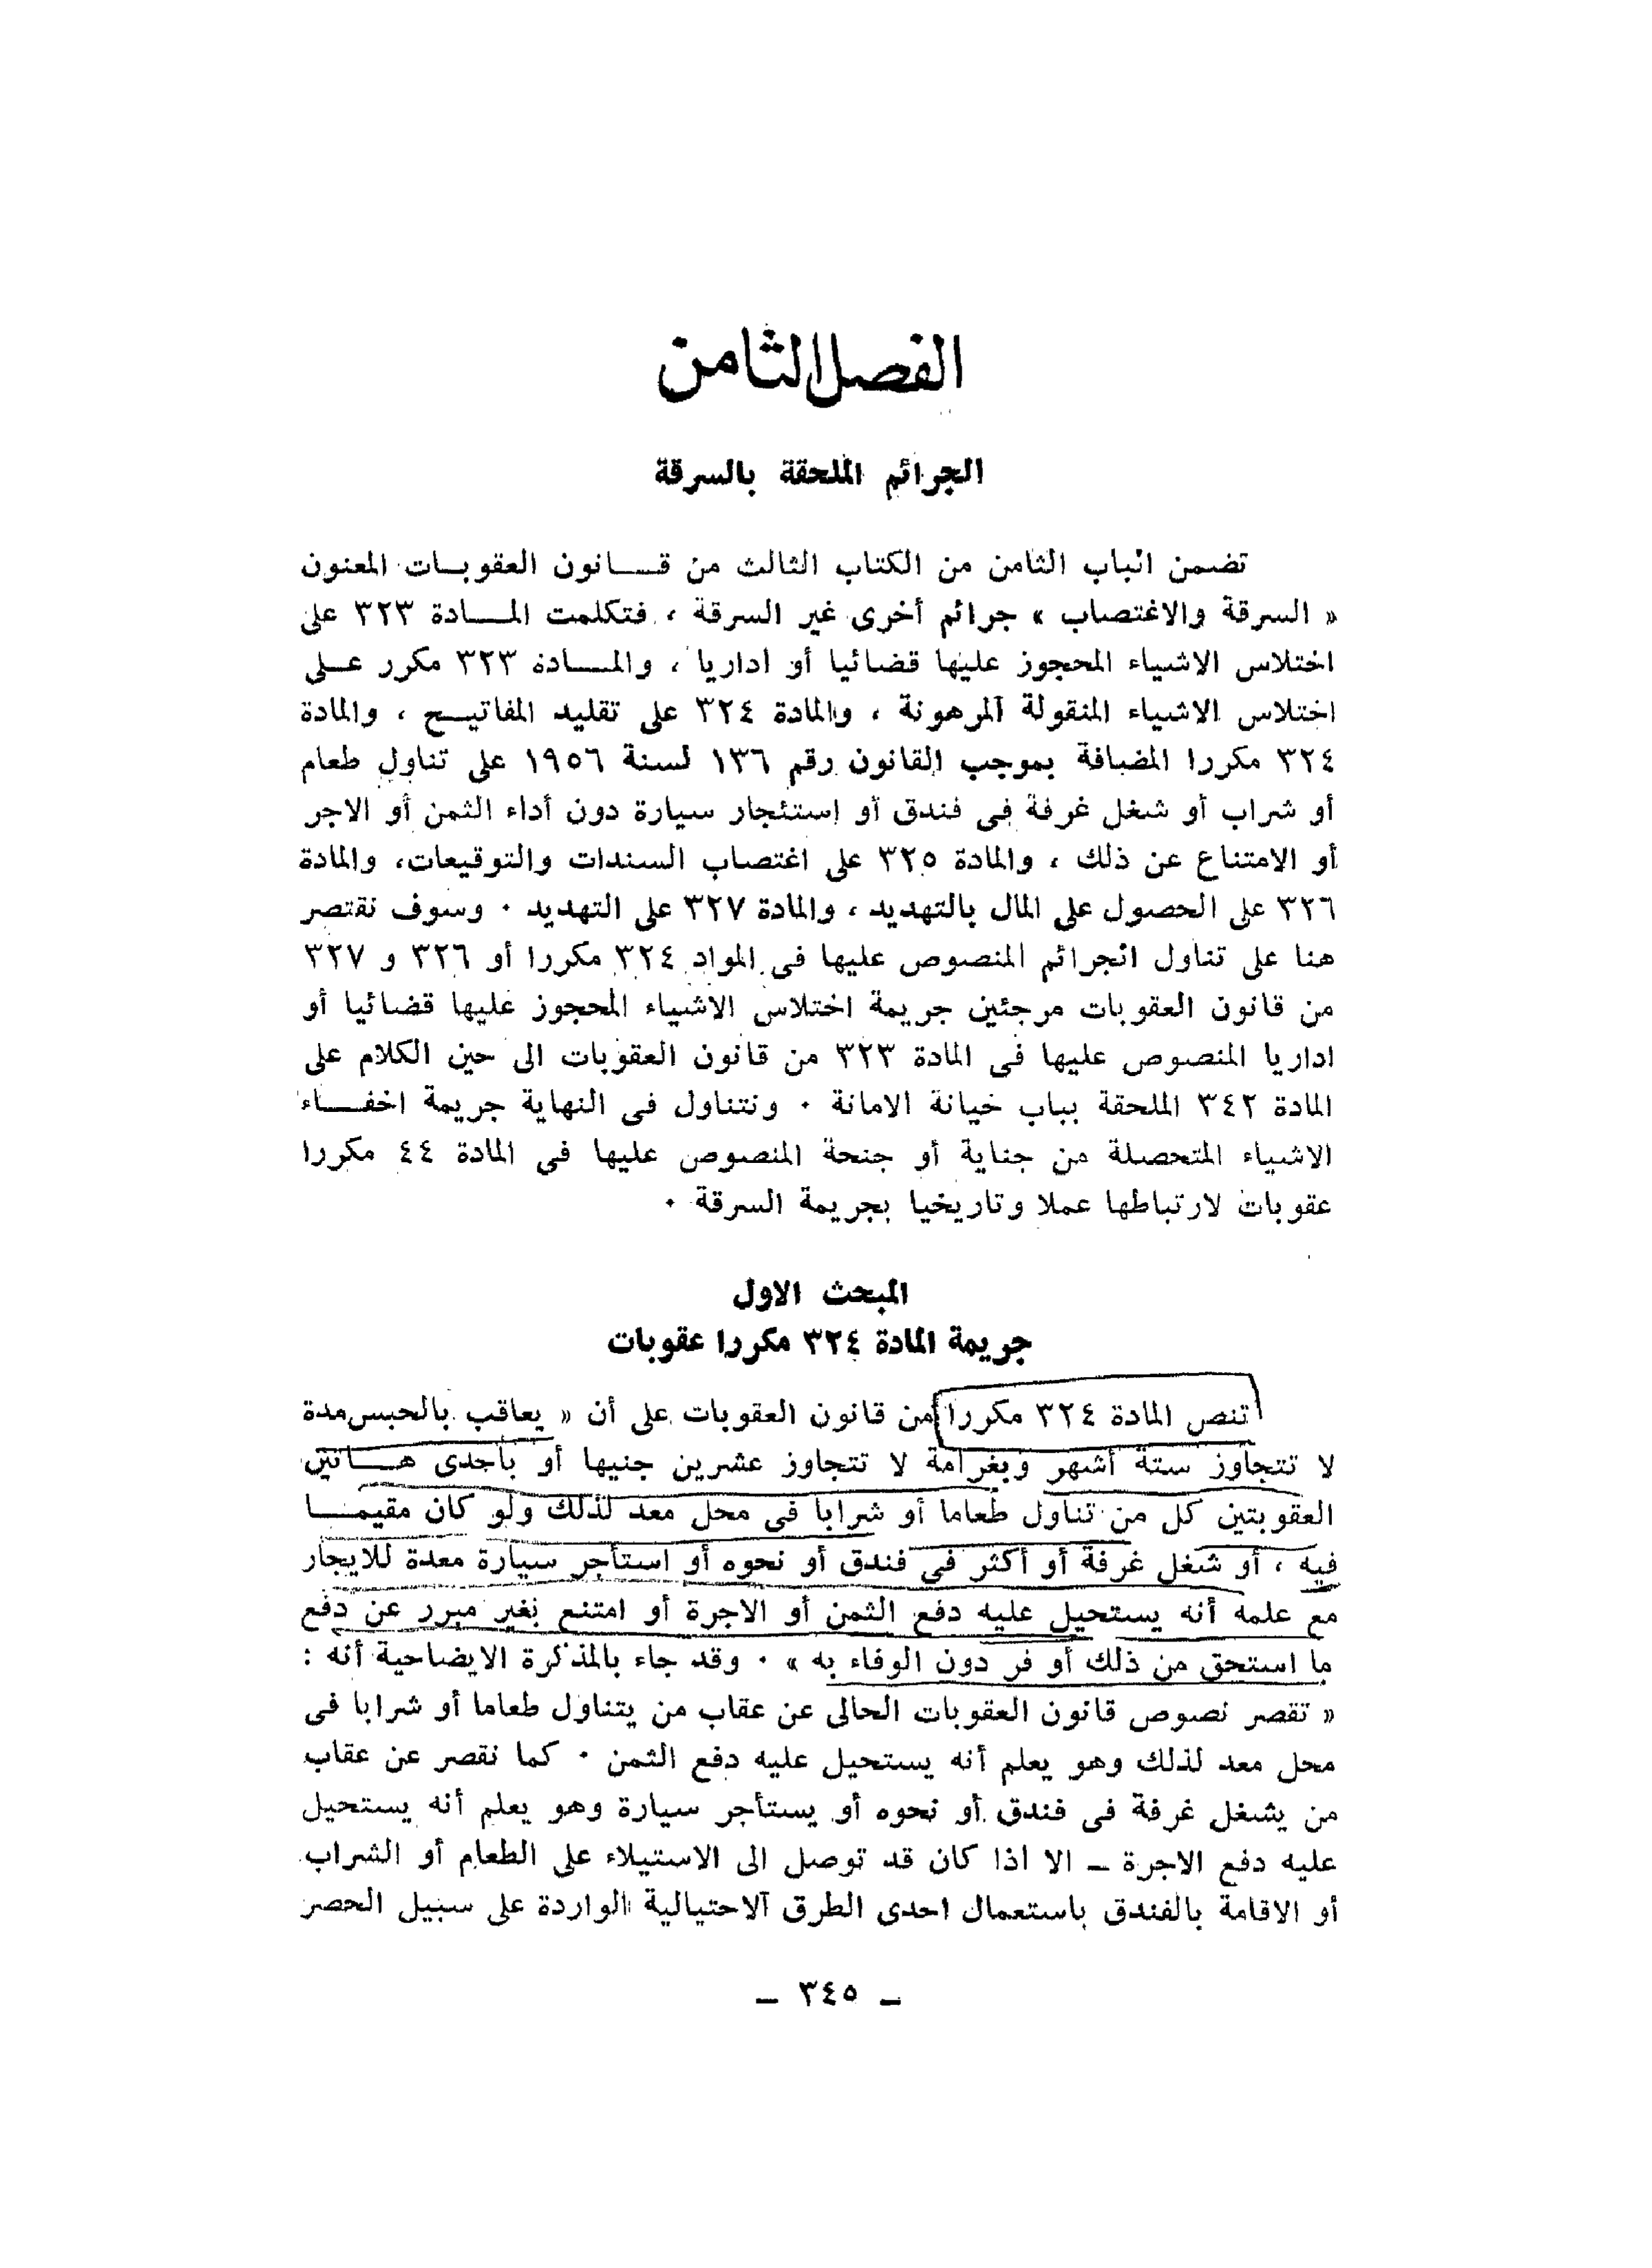 الفصل الثامن
الجرائم الملحقة بالسرقة
تضمن الباب الثامن من الكتاب الثالث من قـــانون العقوبـــات المعنون
« السرقة والاغتصاب » جرائم أخرى غير السرقة ، فتكلمت المـــادة ٣٢٣ على
اختلاس الاشياء المحجوز عليها قضائيا أو اداريا ، والمـــادة ٣٢٣ مكرر عـــلى
اختلاس الاشياء المنقولة المرهونة ، والمادة ٣٢٤ على تقليد المفاتيـــح ، والمادة
٣٢٤ مكررا المضافة بموجب القانون رقم ١٣٦ لسنة ١٩٥٦ على تناول طعام
أو شراب أو شغل غرفة فى فندق أو إستئجار سيارة دون أداء الثمن أو الاجر
أو الامتناع عن ذلك ، والمادة ٣٢٥ على اغتصاب السندات والتوقيعات، والمادة
٣٢٦ على الحصول على المال بالتهديد ، والمادة ٣٢٧ على التهديد ٠ وسوف نقتصر
هنا على تناول الجرائم المنصوص عليها فى المواد ٣٢٤ مكررا أو ٣٢٦ و ٣٢٧
من قانون العقوبات مرجئين جريمة اختلاس الاشياء المحجوز عليها قضائيا أو
اداريا المنصوص عليها فى المادة ٣٢٣ من قانون العقوبات الى حين الكلام على
المادة ٣٤٢ الملحقة بباب خيانة الامانة ٠ ونتناول فى النهاية جريمة اخفـــاء
الاشياء المتحصلة من جناية أو جنحة المنصوص عليها فى المادة ٤٤ مكررا
عقوبات لارتباطها عملا وتاريخيا بجريمة السرقة ٠
المبحث الاول
جريمة المادة ٣٢٤ مكررا عقوبات
تنص المادة ٣٢٤ مكررا من قانون العقوبات على أن « يعاقب بالحبس مدة
لا تتجاوز ستة أشهر وبغرامة لا تتجاوز عشرين جنيها أو باحدى هـــاتين
العقوبتين كل من تناول طعاما أو شرابا فى محل معد لذلك ولو كان مقيمـــا
فيه ، أو شغل غرفة أو أكثر فى فندق أو نحوه أو استأجر سيارة معدة للايجار
مع علمه أنه يستحيل عليه دفع الثمن أو الاجرة أو امتنع بغير مبرر عن دفع
ما استحق من ذلك أو فر دون الوفاء به » ٠ وقد جاء بالمذكرة الايضاحية أنه :
« تقصر نصوص قانون العقوبات الحالى عن عقاب من يتناول طعاما أو شرابا فى
محل معد لذلك وهو يعلم أنه يستحيل عليه دفع الثمن ٠ كما تقصر عن عقاب
من يشغل غرفة فى فندق أو نحوه أو يستأجر سيارة وهو يعلم أنه يستحيل
عليه دفع الاجرة ــ الا اذا كان قد توصل الى الاستيلاء على الطعام أو الشراب
أو الاقامة بالفندق باستعمال احدى الطرق الاحتيالية الواردة على سبيل الحصر
ــ ٣٤٥ ــ